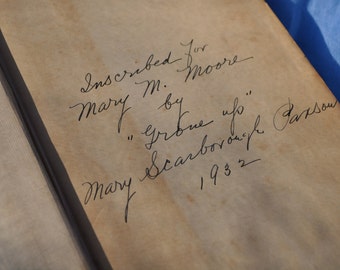 Inscribed For
Mary M. Moore
by
"Grown up"
Mary Scarborough Paxson
1932